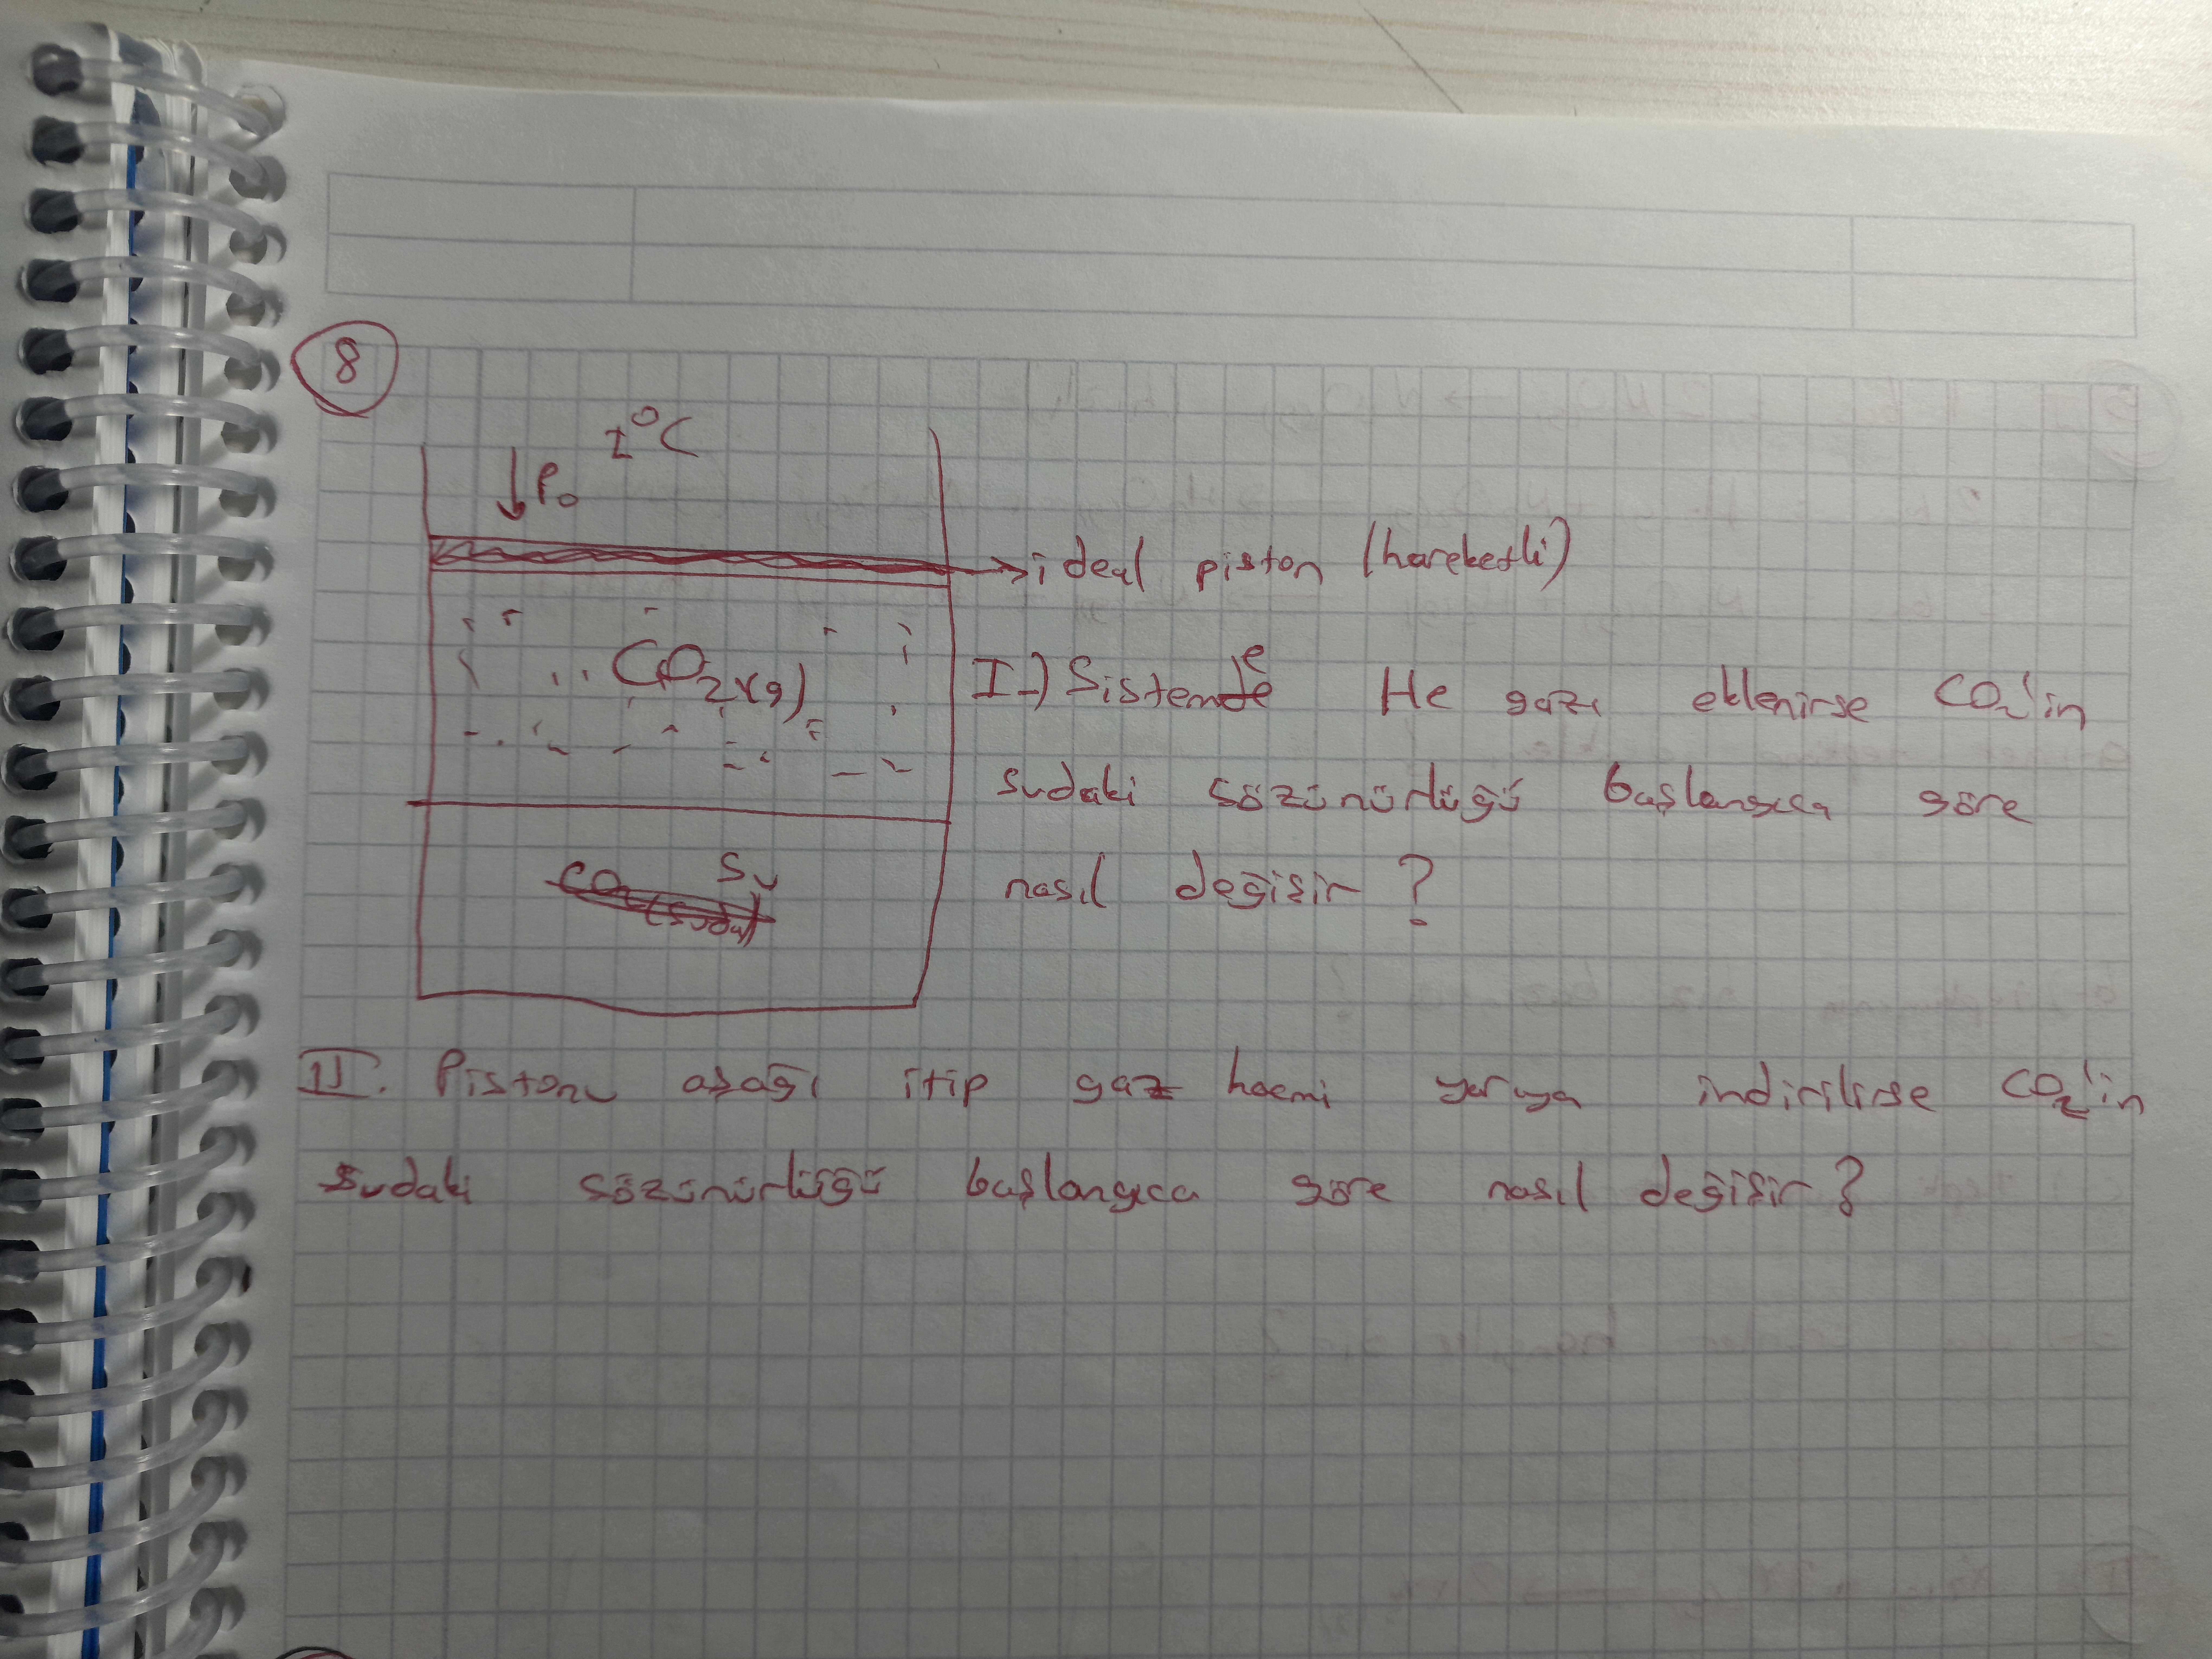 8
1°C
↓P₀
→ ideal piston (hareketli)
CO₂(g)
I-) Sisteme He gazı eklenirse CO₂'in
sudaki çözünürlüğü başlangıca göre
nasıl değişir?
Su
CO₂(suda)
II. Pistonu aşağı itip gaz hacmi yarıya indirilirse CO₂'in
sudaki çözünürlüğü başlangıca göre nasıl değişir?